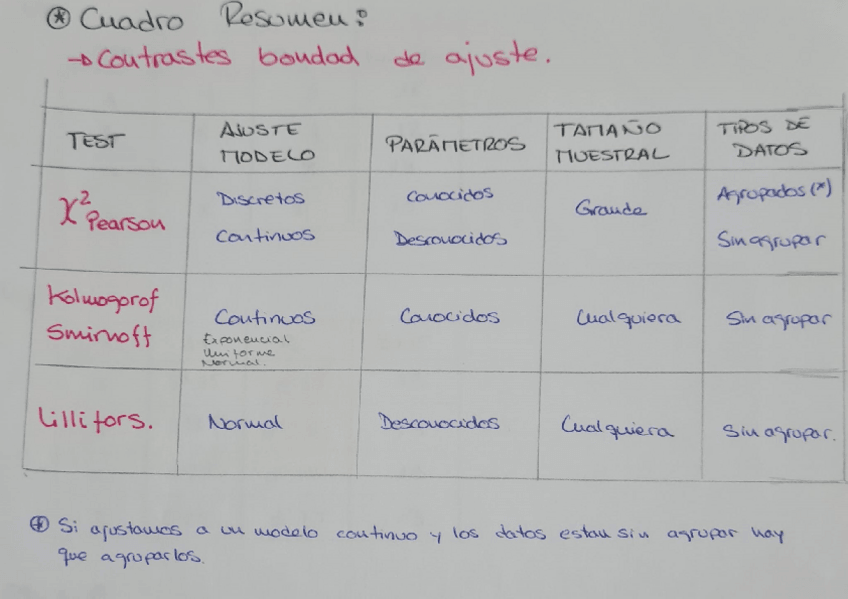 ⊛ Cuadro Resumen:
→ Contrastes bondad de ajuste.
TEST
AJUSTE
MODELO
PARÁMETROS
TAMAÑO
MUESTRAL
TIPOS DE
DATOS
χ² Pearson
Discretos
Continuos
Conocidos
Desconocidos
Grande
Agrupados (*)
Sin agrupar
Kolmogorof
Smirnoff
Continuos
Exponencial
Uniforme
Normal.
Conocidos
Cualquiera
Sin agrupar
Lillifors.
Normal
Desconocidos
Cualquiera
Sin agrupar.
⊛ Si ajustamos a un modelo continuo y los datos estan sin agrupar hay
que agruparlos.